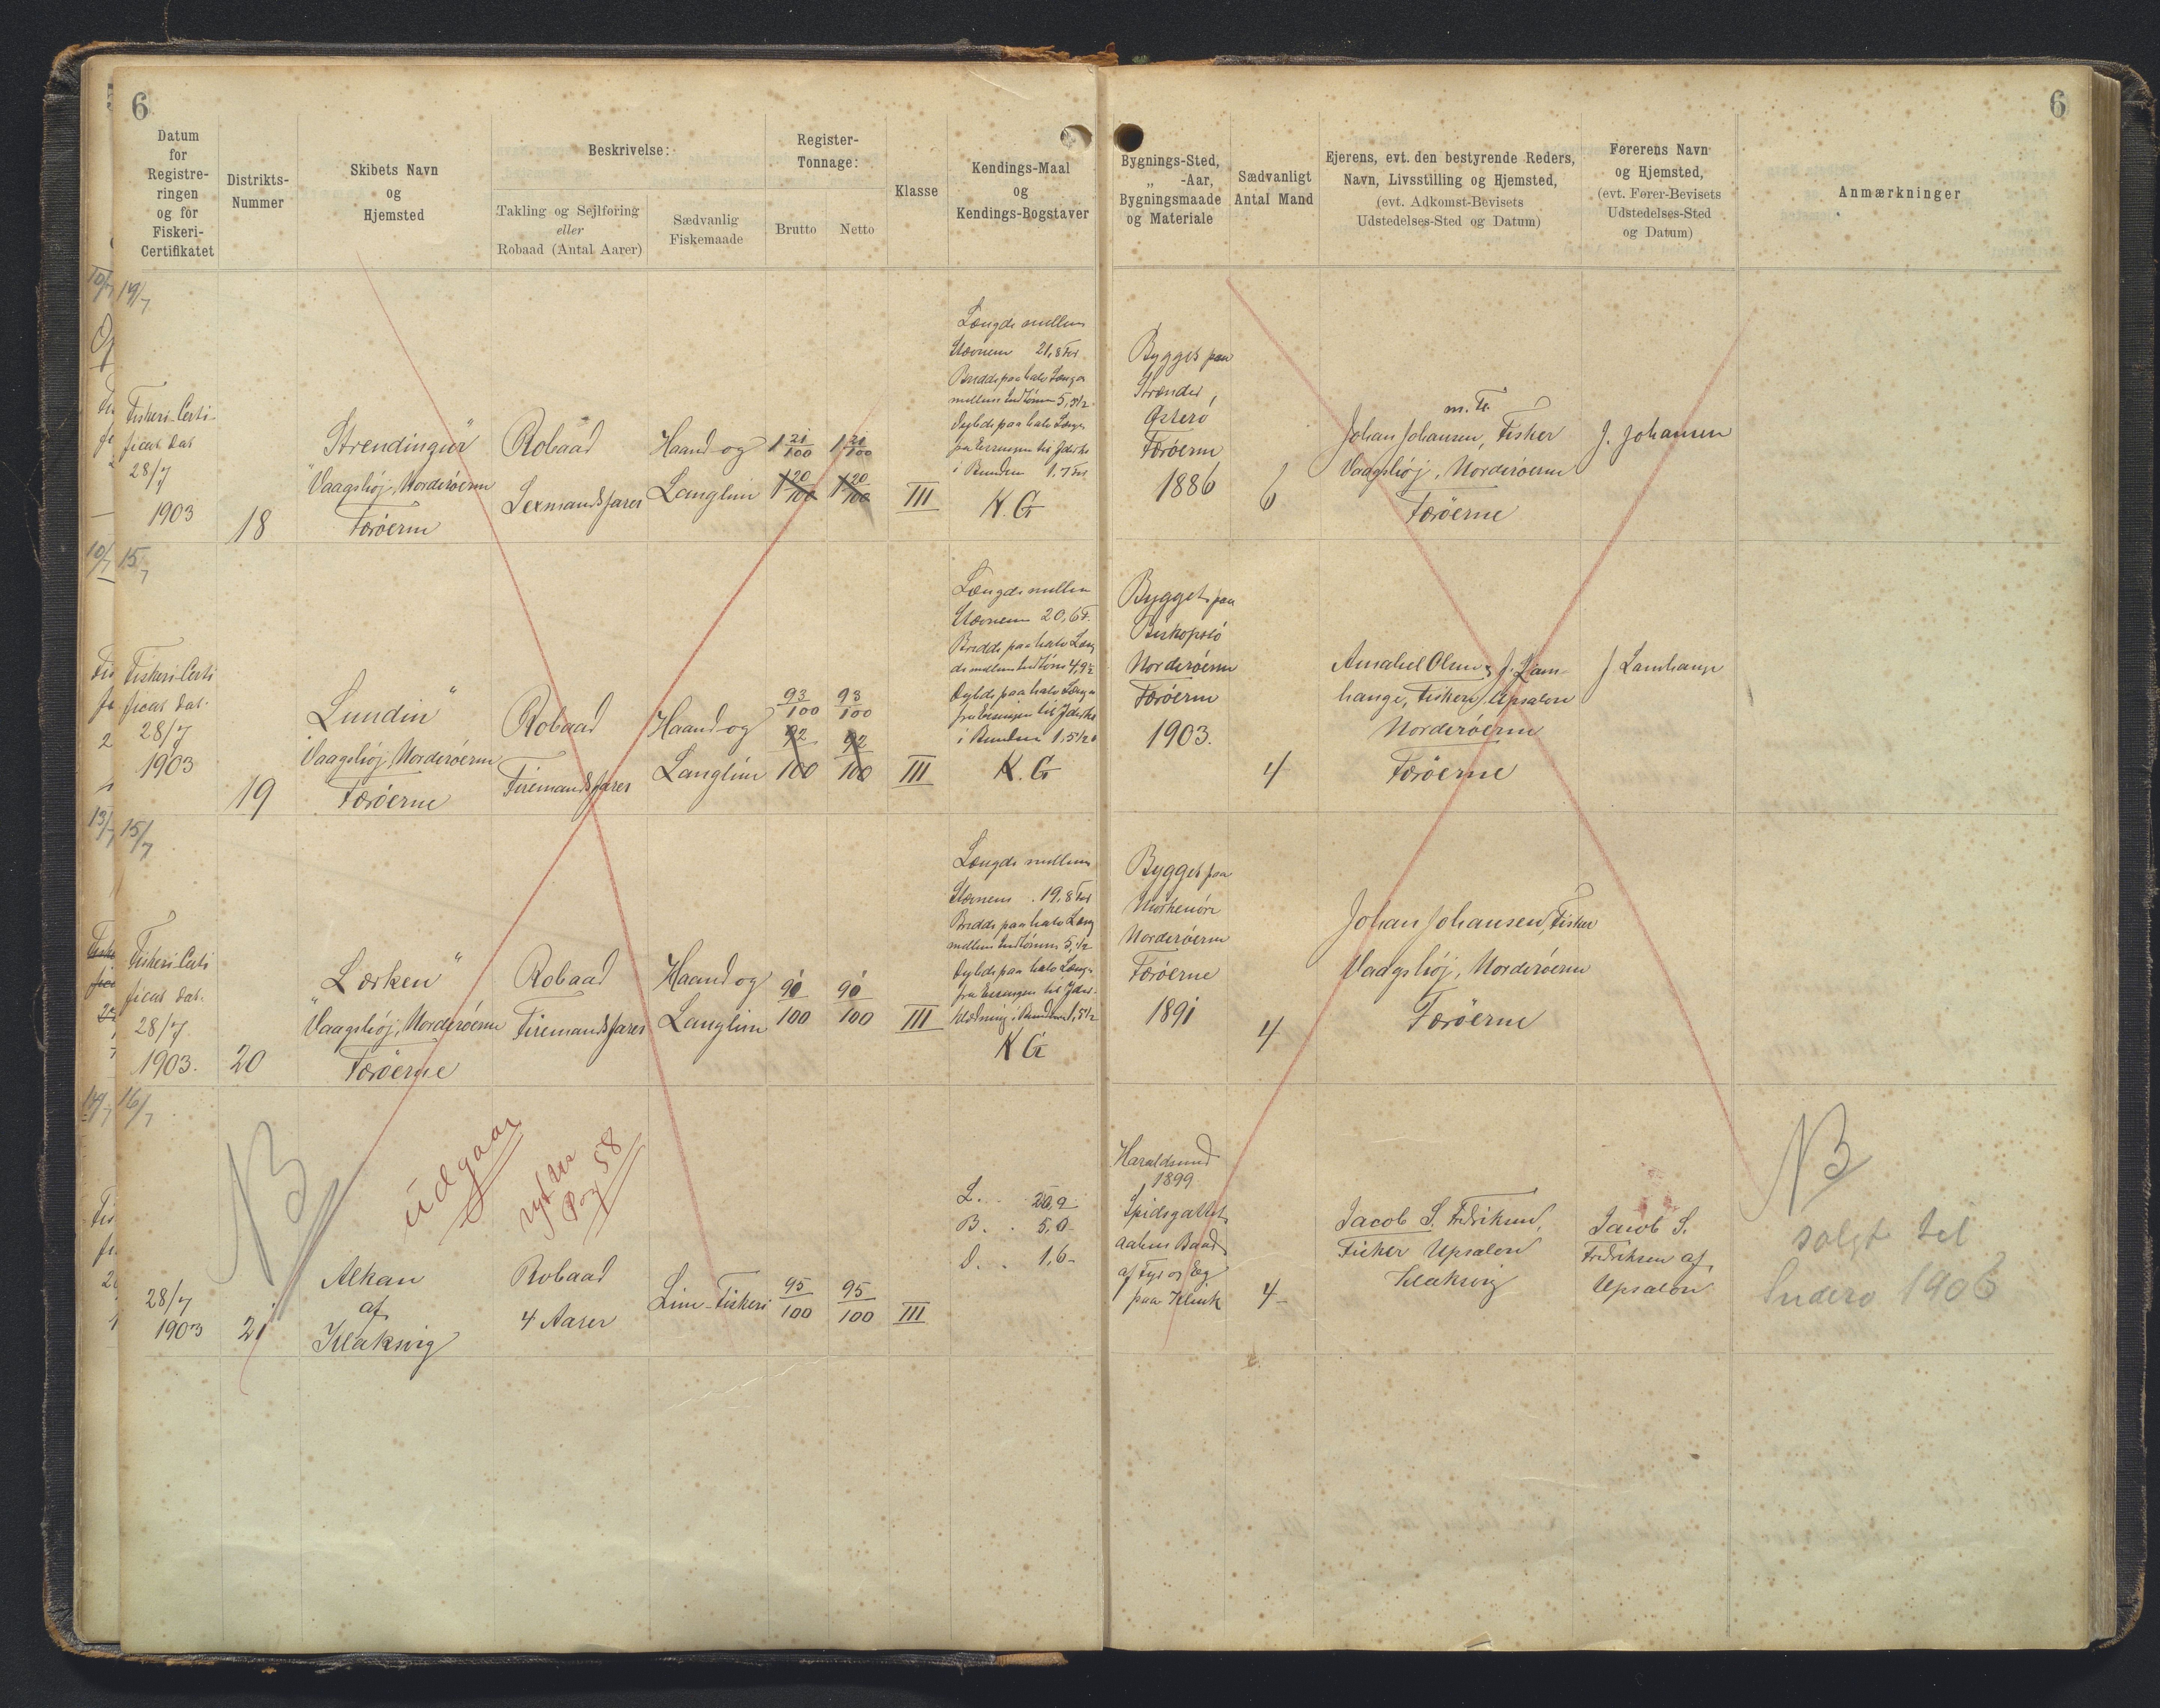 6
6
Datum
for
Registre-
ringen
og for
Fiskeri-
Certifikatet
Distrikts-
Nummer
Skibets Navn
og
Hjemsted
Beskrivelse:
Takling og Sejlføring
eller
Robaad (Antal Aarer)
Sædvanlig
Fiskemaade
Register-
Tonnage:
Brutto
Netto
Klasse
Kendings-Maal
og
Kendings-Bogstaver
Bygnings-Sted,
„ -Aar,
Bygningsmaade
og Materiale
Sædvanligt
Antal Mand
Ejerens, evt. den bestyrende Reders,
Navn, Livsstilling og Hjemsted,
(evt. Adkomst-Bevisets
Udstedelses-Sted og Datum)
Førerens Navn
og Hjemsted,
(evt. Fører-Bevisets
Udstedelses-Sted
og Datum)
Anmærkninger
14/7
Fiskeri-Certi-
ficat dat
28/7
1903
18
Strendingur"
"Vaagshøj, Norderøerne
Færøerne
Robaad
Sexmandsfarer
Haand-og
Langline
1 21/100
1 21/100
1 20/100
1 20/100
III
Længde mellem
Stævnene 21,8 Fod
Bredde paa halv Længde
mellem Indtømm 5,3 1/2
Dybde paa halv Længde
fra Essingen til Yderkl
i Bunden 1,7 Fod
K. G
Bygget paa
Strender
Østerø
Færøerne
1886
6
m. Fl.
Johan Johansen, Fisker
Vaagshøj, Norderøerne
Færøerne
J. Johansen
15/7
Fiskeri-Certi
ficat dat.
28/7
1903
19
Lundin"
Vaagshøj, Norderøerne
Færøerne
Robaad
Firemandsfarer
Haand og
Langline
93/100
93/100
92/100
92/100
III
Længde mellem
Stævnene 20,6 F.
Bredde paa halv Læng
de mellem Indtøm 4,9 1/2
Dybde paa halv Længde
fra Essingen til Yderkl
i Bunden 1,5 1/2
K. G
Bygget paa
Biskopstø
Norderøerne
Færøerne
1903.
4
Amaliel Olsen & J. Lam-
hauge, Fiskere, Upsalon
Norderøerne
Færøerne
J Lamhauge
15/7
Fiskeri-Certi
ficat dat.
28/7
1903.
20
Lærken"
"Vaagshøj, Norderøerne
Færøerne
Robaad
Firemandsfarer
Haand og
Langline
90/100
90/100
III
Længde mellem
Stævnene 19,8 Fod
Bredde paa halv Læng
mellem Indtømm 5, 1/2
Dybde paa halv Længde
fra Essingen til Yder-
klædning i Bunden 1,5 1/2
K G
Bygget paa
Norderøerne
Færøerne
1891
4
Johan Johansen, Fisker
Vaagshøj, Norderøerne
Færøerne
16/7
NB
udgaar
nyt No
Pag 58
28/7
1903
21
Alkan
af
Klaksvig
Robaad
4 Aarer
Line-Fiskeri
95/100
95/100
III
L. . 20,9
B. . 5,0
D. . 1,6
Haraldsund
1899
Spidsgattet
aaben Baad
af Fyr og Eg
paa Klink
4
Jacob S. Fredriksen,
Fisker Upsalon
Klaksvig
Jacob S.
Fredriksen af
Upsalon
NB
solgt til
Suderø 1906